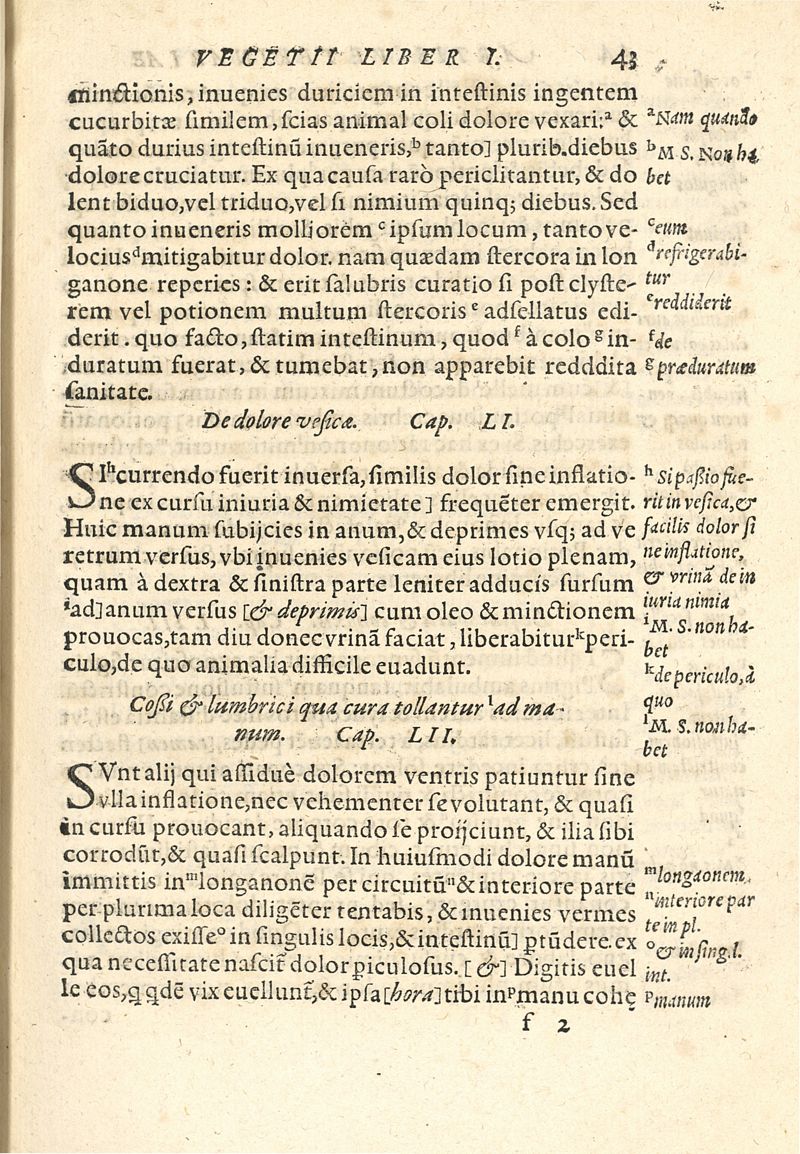 VEGETII LIBER I. 43
minctionis, inuenies duriciem in intestinis ingentem
cucurbitæ similem, scias animal coli dolore vexari:ᵃ &
quãto durius intestinũ inueneris,ᵇ tanto] plurib. diebus
dolore cruciatur. Ex qua causa rarò periclitantur, & do
lent biduo, vel triduo, vel si nimium quinq; diebus. Sed
quanto inueneris molliorem ᶜipsum locum, tanto ve-
lociusᵈ mitigabitur dolor. nam quædam stercora in lon
ganone reperies : & erit salubris curatio si post clyste-
rem vel potionem multum stercoris ᵉ adsellatus edi-
derit. quo facto, statim intestinum, quod ᶠ à colo ᵍ in-
duratum fuerat, & tumebat, non apparebit redddita
sanitate.
ᵃNam quando
ᵇM S. Non ha
bet
ᶜeum
ᵈrefrigerabi-
tur
ᵉreddiderit
ᶠde
ᵍpræduratum
De dolore vesicæ. Cap. LI.
SIʰ currendo fuerit inuersa, similis dolor sine inflatio-
ne ex cursu iniuria & nimietate] frequẽter emergit.
Huic manum subijcies in anum, & deprimes vsq; ad ve
retrum versus, vbi inuenies vesicam eius lotio plenam,
quam à dextra & sinistra parte leniter adducís sursum
ⁱad] anum versus [& deprimis] cum oleo & minctionem
prouocas, tam diu donec vrinã faciat, liberabiturᵏ peri-
culo, de quo animalia difficile euadunt.
ʰ Si passio fue-
rit in vesica, &
facilis dolor si
ne inflatione,
& vrinã de in
iuria nimia
ⁱM. S. non ha-
bet
ᵏde periculo, à
quo
Cossi & lumbrici qua cura tollantur ˡad ma-
num. Cap. LII.
ˡM. S. non ha-
bet
SVnt alij qui assiduè dolorem ventris patiuntur sine
vlla inflatione, nec vehementer se volutant, & quasi
in cursu prouocant, aliquando se proijciunt, & ilia sibi
corrodũt, & quasi scalpunt. In huiusmodi dolore manũ
immittis inᵐ longanonẽ per circuitũⁿ & interiore parte
per plurima loca diligẽter tentabis, & inuenies vermes
collectos exisseᵒ in singulis locis, & intestinũ] ptũdere. ex
qua necessitate nascit̃ dolor piculosus. [&] Digitis euel
le eos, q̃ qdẽ vix euellunt̃, & ipsa [hora] tibi inᵖ manu cohę
ᵐlonganonem
ⁿinteriore par
te in pl.
ᵒ& in sing. l.
int.
ᵖmanum
f 2